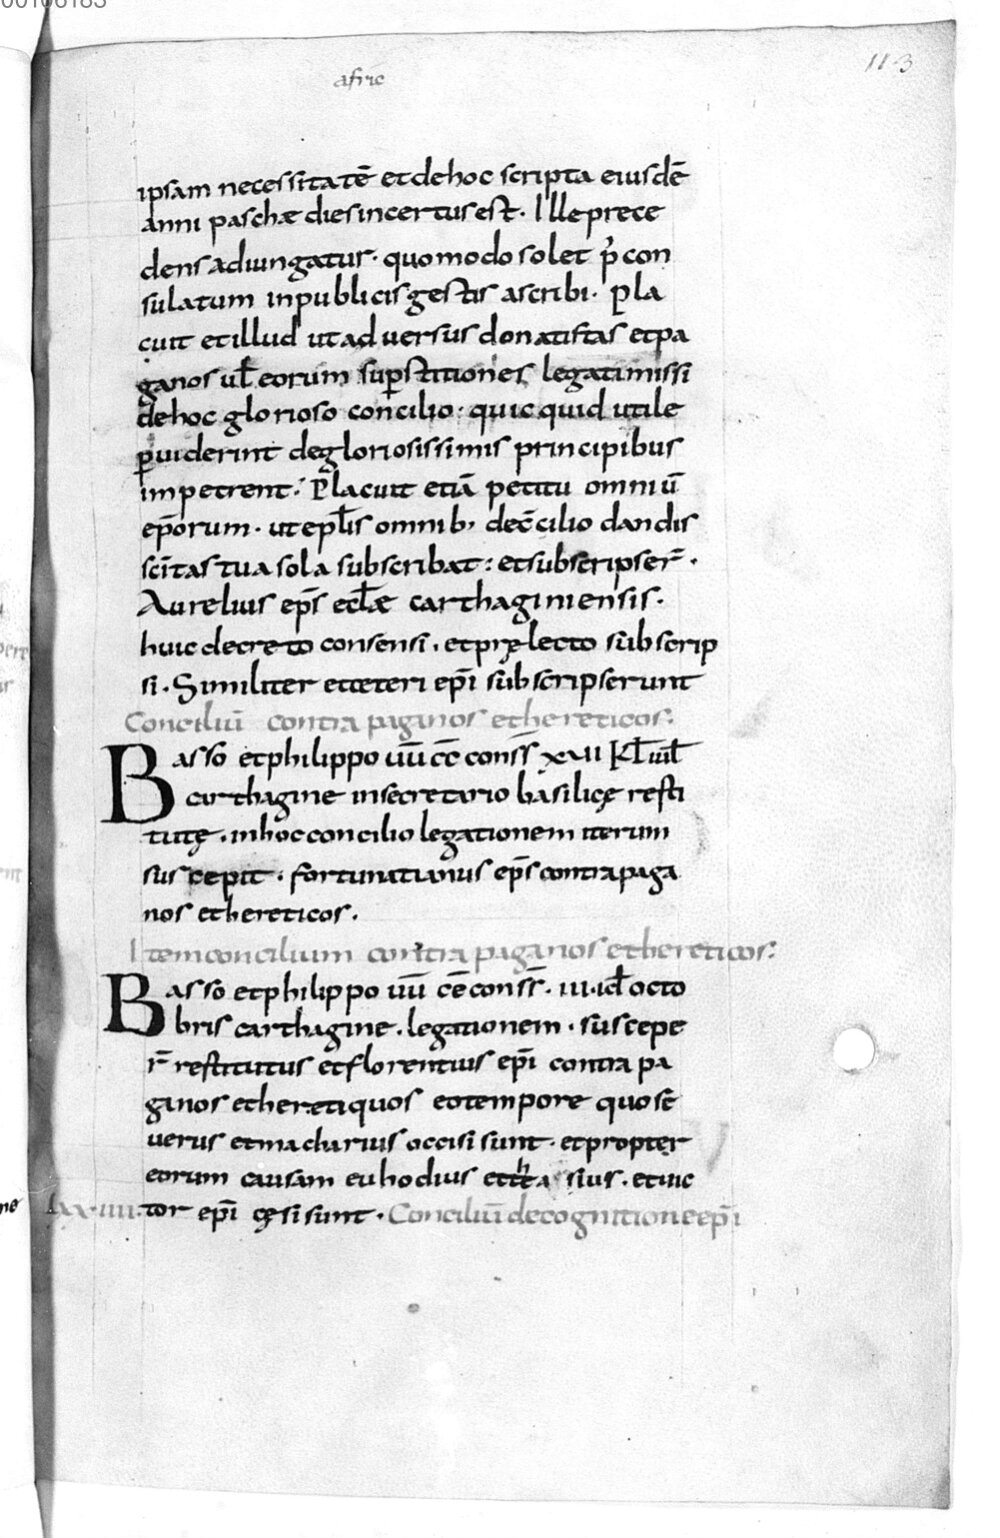 afric
113
ipsam necessitatē et de hoc scripta eiusdē
anni paschæ dies incertus est. Ille prece
dens adiungatur. quomodo solet p̄ con
sulatum in publicis gestis ascribi. Pla
cuit et illud ut ad uersus donatistas et pa
ganos ul̄ eorum sup̄stitiones legati missi
de hoc glorioso concilio. quicquid utile
p̱uiderint de gloriosissimis principibus
impetrent. Placuit etiā petitu omniū
ep̄orum. ut epl̄is omnib; de c̄cilio dandis
sc̄itas tua sola subscribat: et subscripser̄.
Aurelius ep̄s ecl̄æ carthaginiensis.
huic decreto consensi. et prę lecto subscrip
si. Similiter et ceteri ep̄i subscripserunt
Conciliū contra paganos et hereticos:
Basso et philippo uū cc̄ conss̄ xvii kl̄ iul̄
carthagine in secretario basilicę resti
tutę. in hoc concilio legationem iterum
suscepit. fortunatianus ep̄s contra paga
nos et hereticos.
Item concilium contra paganos et hereticos:
Basso et philippo uū cc̄ conss̄. iii. id̄ octo
bris carthagine. legationem. suscepe
r̄ restitutus et florentius ep̄i contra pa
ganos et heretiquos eo tempore quo sē
uerus et macharius occisi sunt. et propter
eorum causam euhodius et sius. et uic
lxx.iiii. tor ep̄i cęsi sunt. Conciliū de cognitione ep̄i